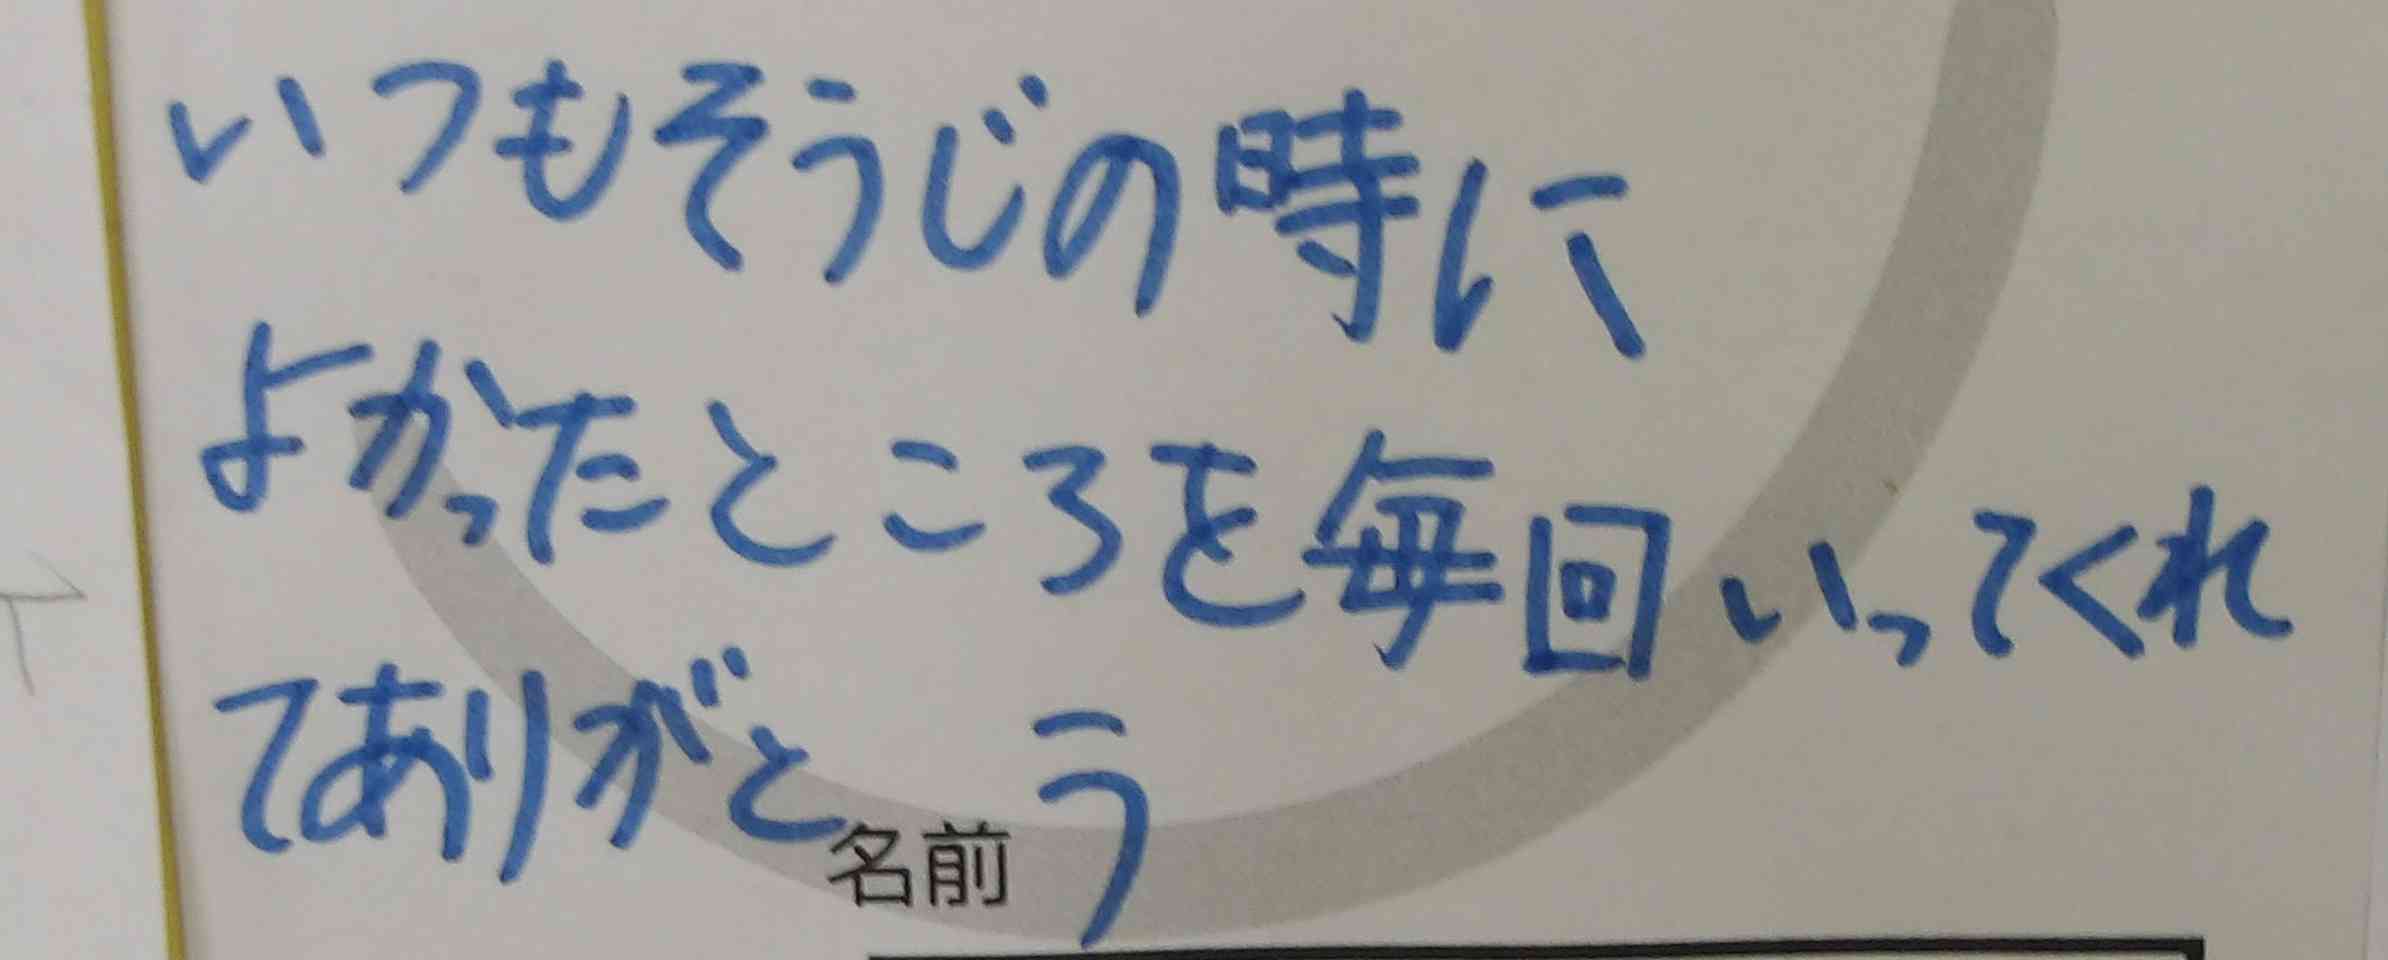 いつもそうじの時に
よかったところを毎回いってくれ
てありがとう
名前